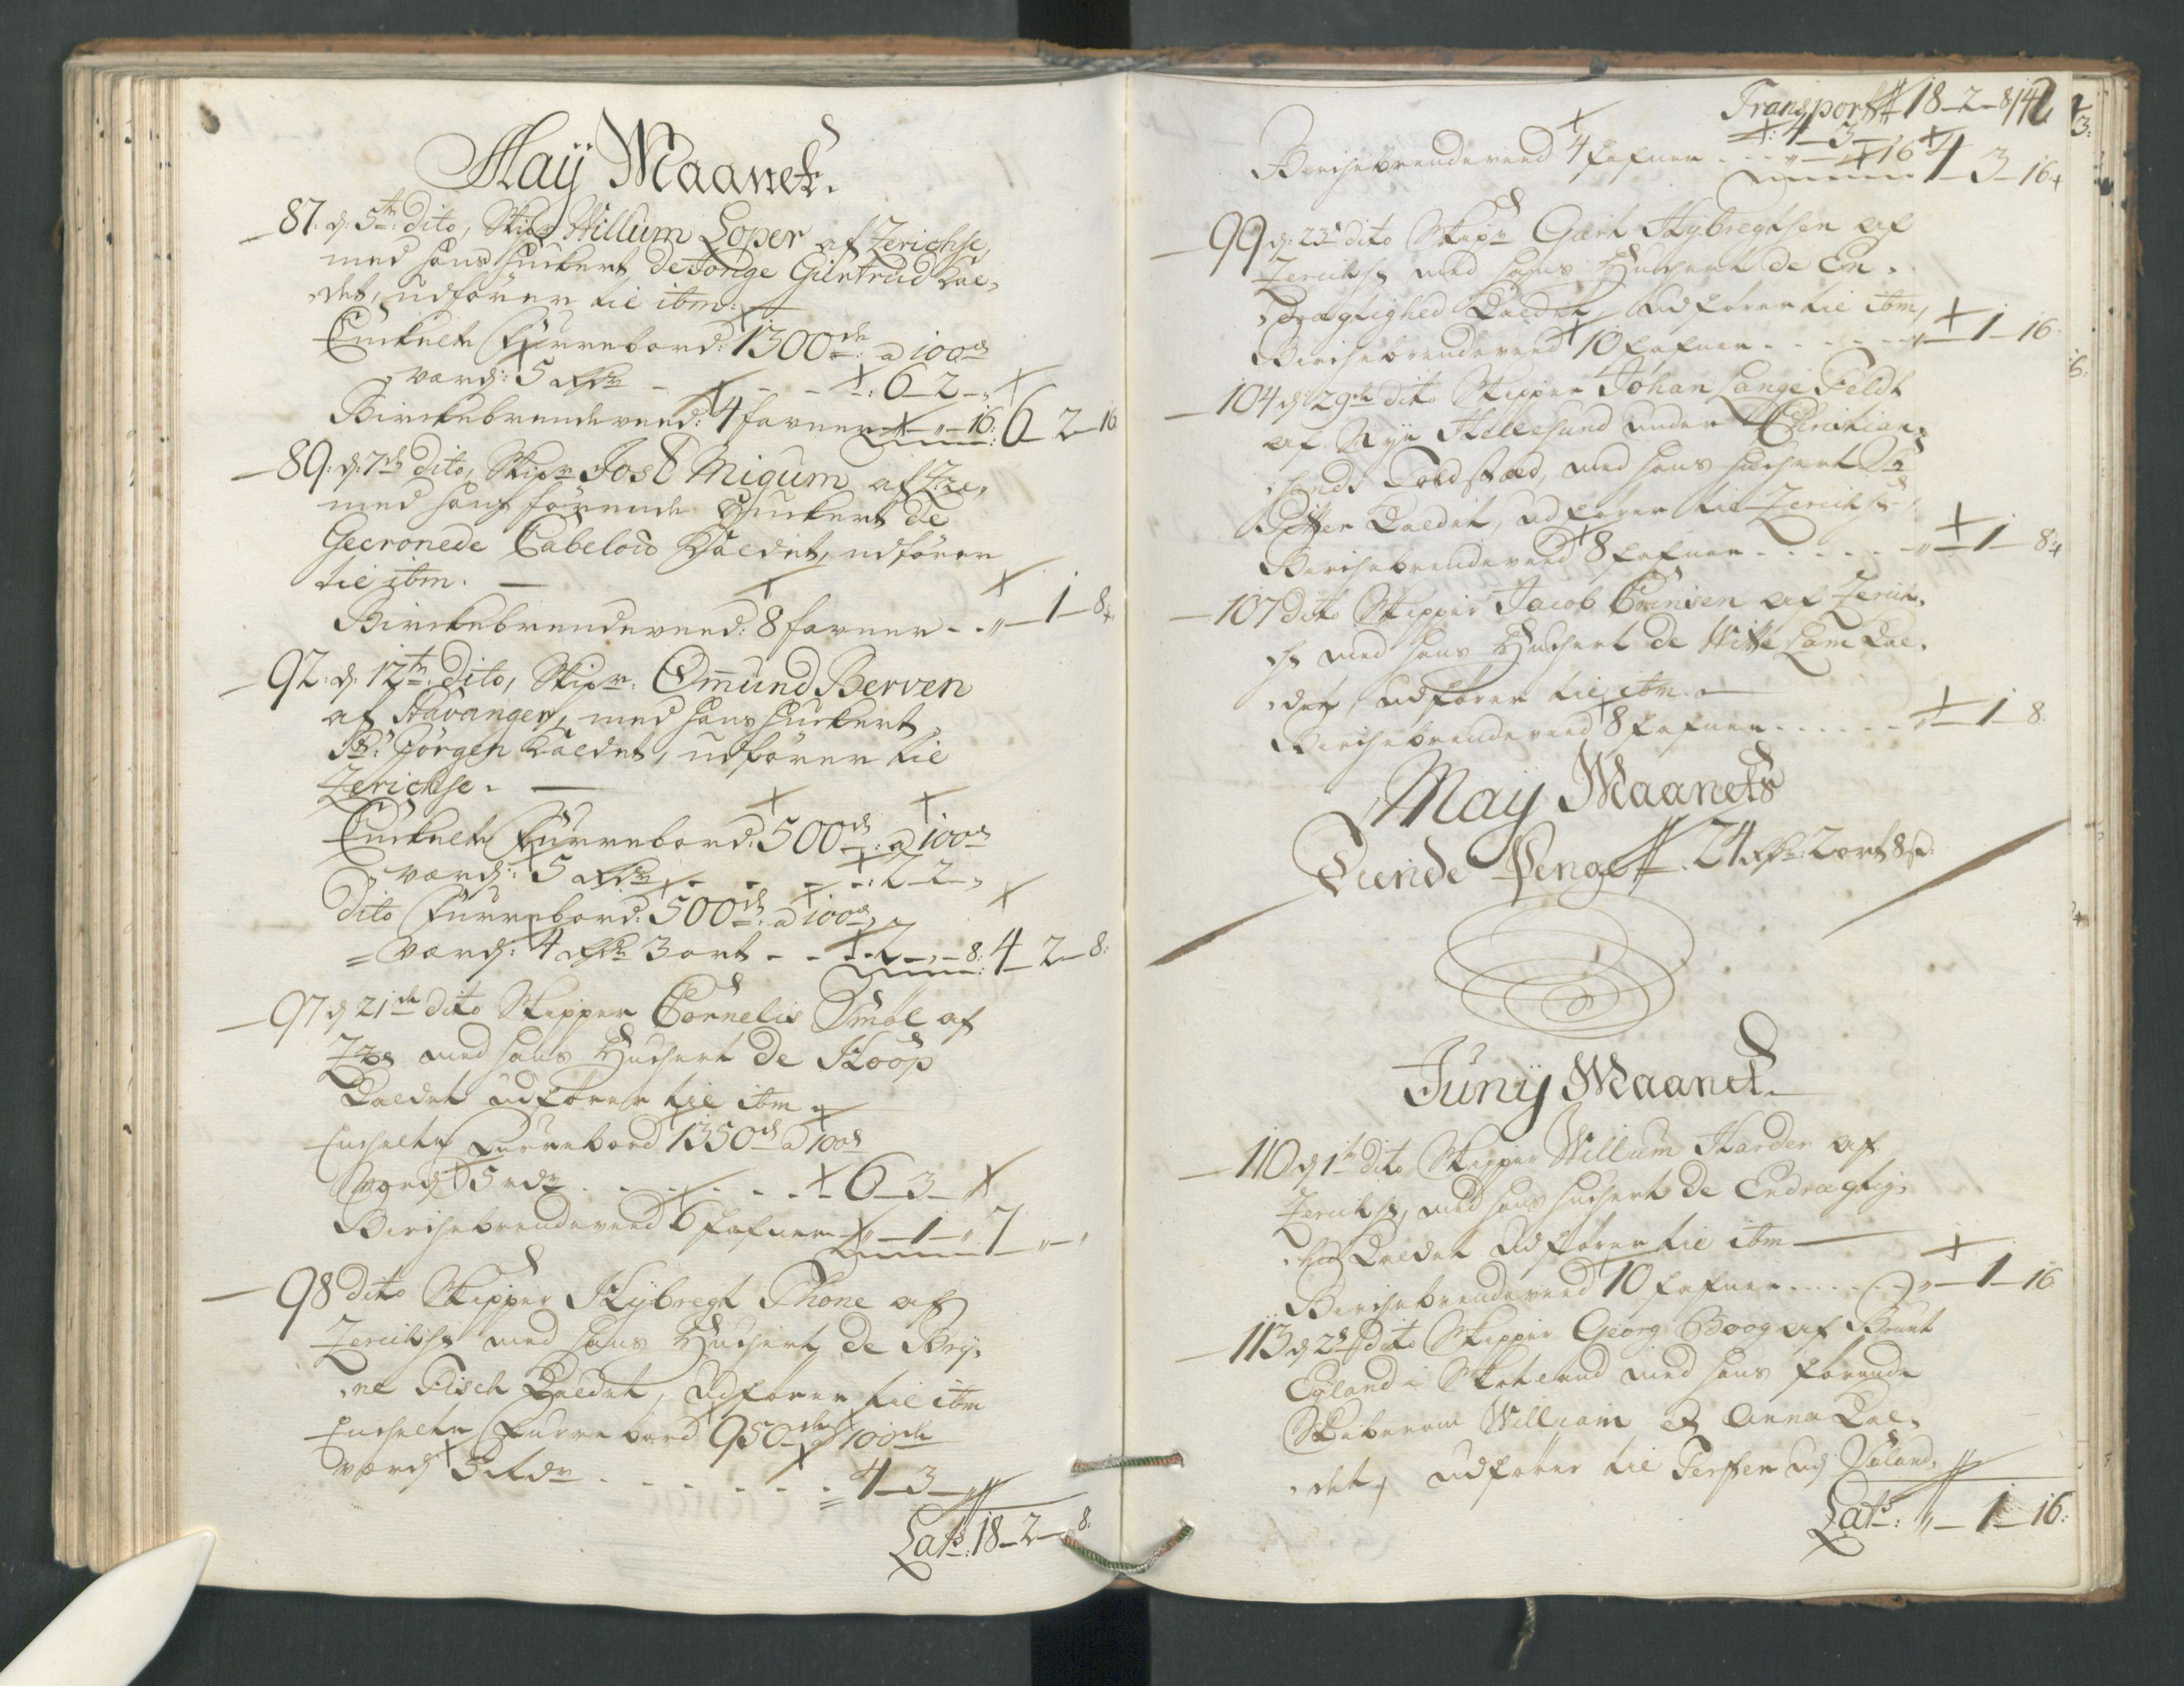 Maÿ Maanet.
87. d: 5te dito, Skipr Willum Loper af Zerichse,
med hans Huckert de Jonge Giertrud kal-
det, udfører til ibm:
Enckelte Fürrebord: 1300de a 100de
værd: 5 Rdr - - - 6 - 2 -
Birckebrendeveed: 4 favner - " - 16: 6 - 2 - 16
89: d: 7de dito, Skipr Jost Migum af Zze,
med hans førende Huckert de
Gecronede Cabelow kaldet, udfører
til ibm.
Birckebrendeveed: 8 favner - - " - 1 - 8:
92: d: 12te dito, Skipr. Omund Berven
af Stavanger, med hans Huckert
St: Jørgen kaldet, udfører til
Zerichse.
Enckelte Fürrebord: 500de: a 100de
værd: 5 Rdr - - - -: 2 - 2 -
Dito Fürrebord: 500de: a 100de
værd: 4 Rdr 3 ort - - 2 - " - 8: 4 - 2 - 8:
97 d 21de dito Skipper Cornelis Smal af
Zzes med hans Huchert de Hoop
Kaldet udfører til ibm
Enchelte Furrebord 1350de a 100de
værd 5 rdr . . . . . . 6 - 3 -
Birchebrendeveed 6 fafner - " - 1 - " 7 - " - "
98 dito Skipper Hÿbregt Thone af
Zerichse med hans Huchert de Brÿ-
ne Fisch Kaldet, udfører til ibm
Enchelte Furrebord 950de a 100de
værd 5 Rdr . . . . . . 4 - 3 - "
Lats: 18 - 2 - 8:
Transport 18 - 2 - 8 142
4 - 3 -
Birchebrendeveed 4 fafner - - - " - " 16 4 - 3 - 16
99 d: 23de dito Skipr Gært Hÿbregtsen af
Zerichse med hans Huchert de En-
dragtighed Kaldet, udfører til ibm,
Birchebrendeveed 10 fafner - - - - - - " - 1 - 16
104 d 29de dito Skipper Johan Lange Feldt
af Nye Hellesund under Christian-
sands Toldstæd, med hans huchert St
Petter Kaldet, udfører til Zerichse
Birchebrendeveed 8 fafner - - - - - " - 1 - 8
107 dito Skipper Jacob Crinsen af Zerich-
se med hans Huchert de Witte Lam Kal-
det, udfører til ibm.
Birchebrendeveed 8 fafner . . . . . . " - 1 - 8
Maÿ Maanets
Tiende Penge 24 Rdr: 2 ort 8 s:
Junÿ Maanet.
110 d 1te dito Skipper Willum Harder af
Zerichse, med hans huchert de Endragtig-
hed Kaldet udfører til ibm
Birchebrendeveed 10 fafner . . . . . " - 1 - 16
113 d 2de dito Skipper Georg Boog af Brunt
Eÿland i Skotland med hans førende
Skiberom William et Anna Kal-
det, udfører til Ferssen ud Øeland
Lats: " - 1 - 16: